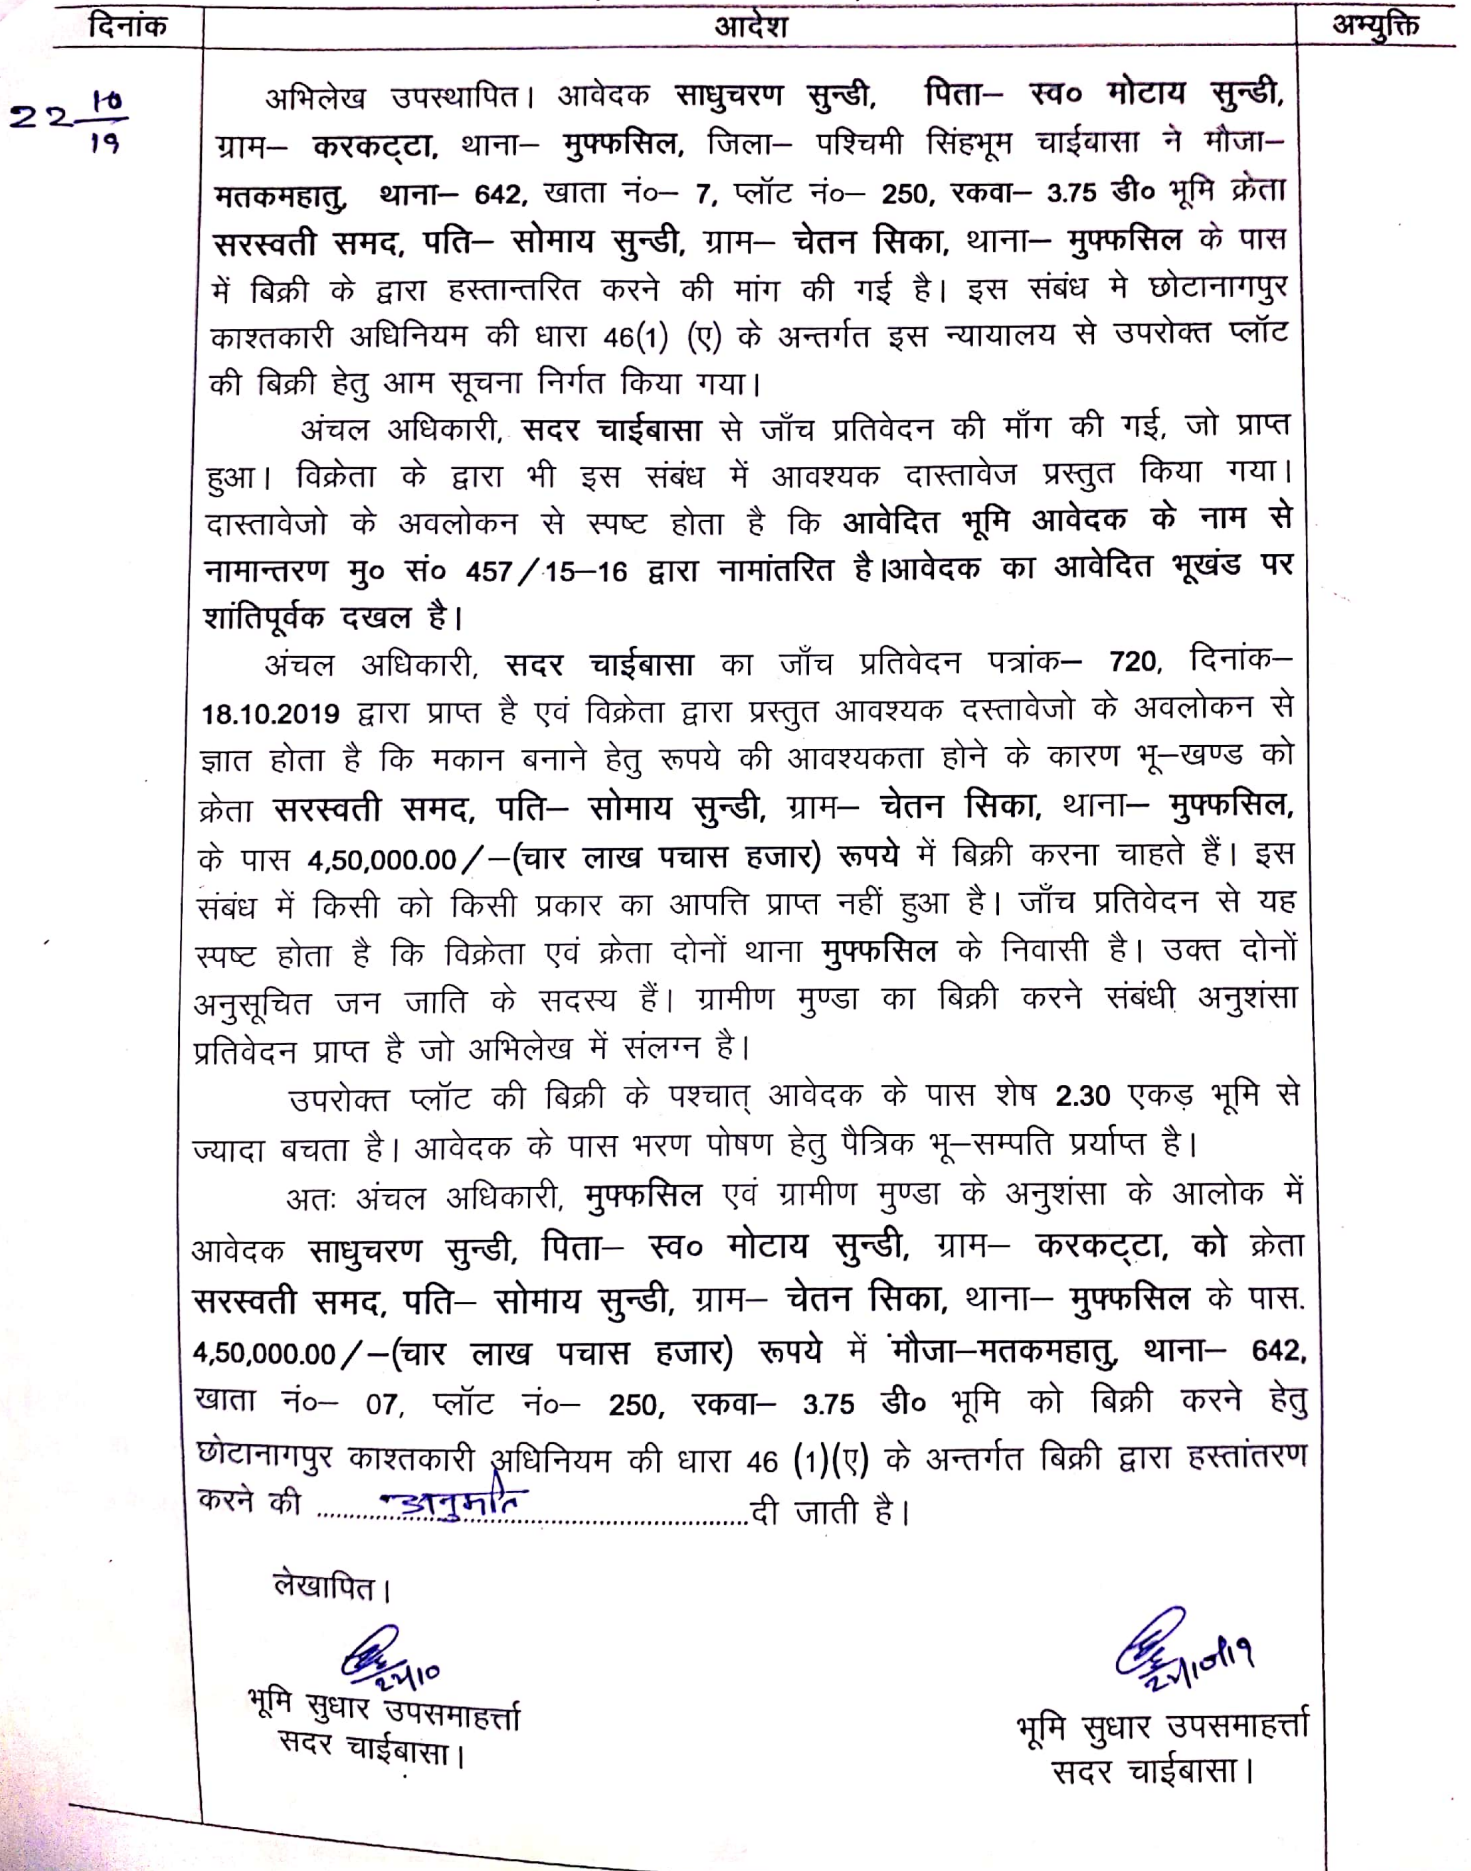 दिनांक आदेश अभ्युक्ति
22 10/19
अभिलेख उपस्थापित। आवेदक साधुचरण सुन्डी, पिता– स्व० मोटाय सुन्डी,
ग्राम– करकट्टा, थाना– मुफ्फसिल, जिला– पश्चिमी सिंहभूम चाईबासा ने मौजा–
मतकमहातु, थाना– 642, खाता नं०– 7, प्लॉट नं०– 250, रकवा– 3.75 डी० भूमि क्रेता
सरस्वती समद, पति– सोमाय सुन्डी, ग्राम– चेतन सिका, थाना– मुफ्फसिल के पास
में बिक्री के द्वारा हस्तान्तरित करने की मांग की गई है। इस संबंध मे छोटानागपुर
काश्तकारी अधिनियम की धारा 46(1) (ए) के अन्तर्गत इस न्यायालय से उपरोक्त प्लॉट
की बिक्री हेतु आम सूचना निर्गत किया गया।
अंचल अधिकारी, सदर चाईबासा से जाँच प्रतिवेदन की माँग की गई, जो प्राप्त
हुआ। विक्रेता के द्वारा भी इस संबंध में आवश्यक दास्तावेज प्रस्तुत किया गया।
दास्तावेजो के अवलोकन से स्पष्ट होता है कि आवेदित भूमि आवेदक के नाम से
नामान्तरण मु० सं० 457/15–16 द्वारा नामांतरित है।आवेदक का आवेदित भूखंड पर
शांतिपूर्वक दखल है।
अंचल अधिकारी, सदर चाईबासा का जाँच प्रतिवेदन पत्रांक– 720, दिनांक–
18.10.2019 द्वारा प्राप्त है एवं विक्रेता द्वारा प्रस्तुत आवश्यक दस्तावेजो के अवलोकन से
ज्ञात होता है कि मकान बनाने हेतु रूपये की आवश्यकता होने के कारण भू–खण्ड को
क्रेता सरस्वती समद, पति– सोमाय सुन्डी, ग्राम– चेतन सिका, थाना– मुफ्फसिल,
के पास 4,50,000.00/–(चार लाख पचास हजार) रूपये में बिक्री करना चाहते हैं। इस
संबंध में किसी को किसी प्रकार का आपत्ति प्राप्त नहीं हुआ है। जाँच प्रतिवेदन से यह
स्पष्ट होता है कि विक्रेता एवं क्रेता दोनों थाना मुफ्फसिल के निवासी है। उक्त दोनों
अनुसूचित जन जाति के सदस्य हैं। ग्रामीण मुण्डा का बिक्री करने संबंधी अनुशंसा
प्रतिवेदन प्राप्त है जो अभिलेख में संलग्न है।
उपरोक्त प्लॉट की बिक्री के पश्चात् आवेदक के पास शेष 2.30 एकड़ भूमि से
ज्यादा बचता है। आवेदक के पास भरण पोषण हेतु पैत्रिक भू–सम्पति प्रर्याप्त है।
अतः अंचल अधिकारी, मुफ्फसिल एवं ग्रामीण मुण्डा के अनुशंसा के आलोक में
आवेदक साधुचरण सुन्डी, पिता– स्व० मोटाय सुन्डी, ग्राम– करकट्टा, को क्रेता
सरस्वती समद, पति– सोमाय सुन्डी, ग्राम– चेतन सिका, थाना– मुफ्फसिल के पास.
4,50,000.00/–(चार लाख पचास हजार) रूपये में मौजा–मतकमहातु, थाना– 642,
खाता नं०– 07, प्लॉट नं०– 250, रकवा– 3.75 डी० भूमि को बिक्री करने हेतु
छोटानागपुर काश्तकारी अधिनियम की धारा 46 (1)(ए) के अन्तर्गत बिक्री द्वारा हस्तांतरण
करने की ........अनुमति........दी जाती है।
लेखापित।
भूमि सुधार उपसमाहर्त्ता भूमि सुधार उपसमाहर्त्ता
सदर चाईबासा। सदर चाईबासा।